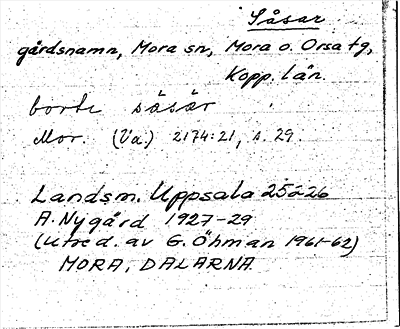 Såsar
gårdsnamn, Mora sn, Mora o. Orsa tg,
Kopp. län.
borte såsär
Mor. (Va.) 2174:21, s. 29.
Landsm. Uppsala 25ö26
A. Nygård 1927-29
(Utred. av G. Öhman 1961-62)
MORA, DALARNA